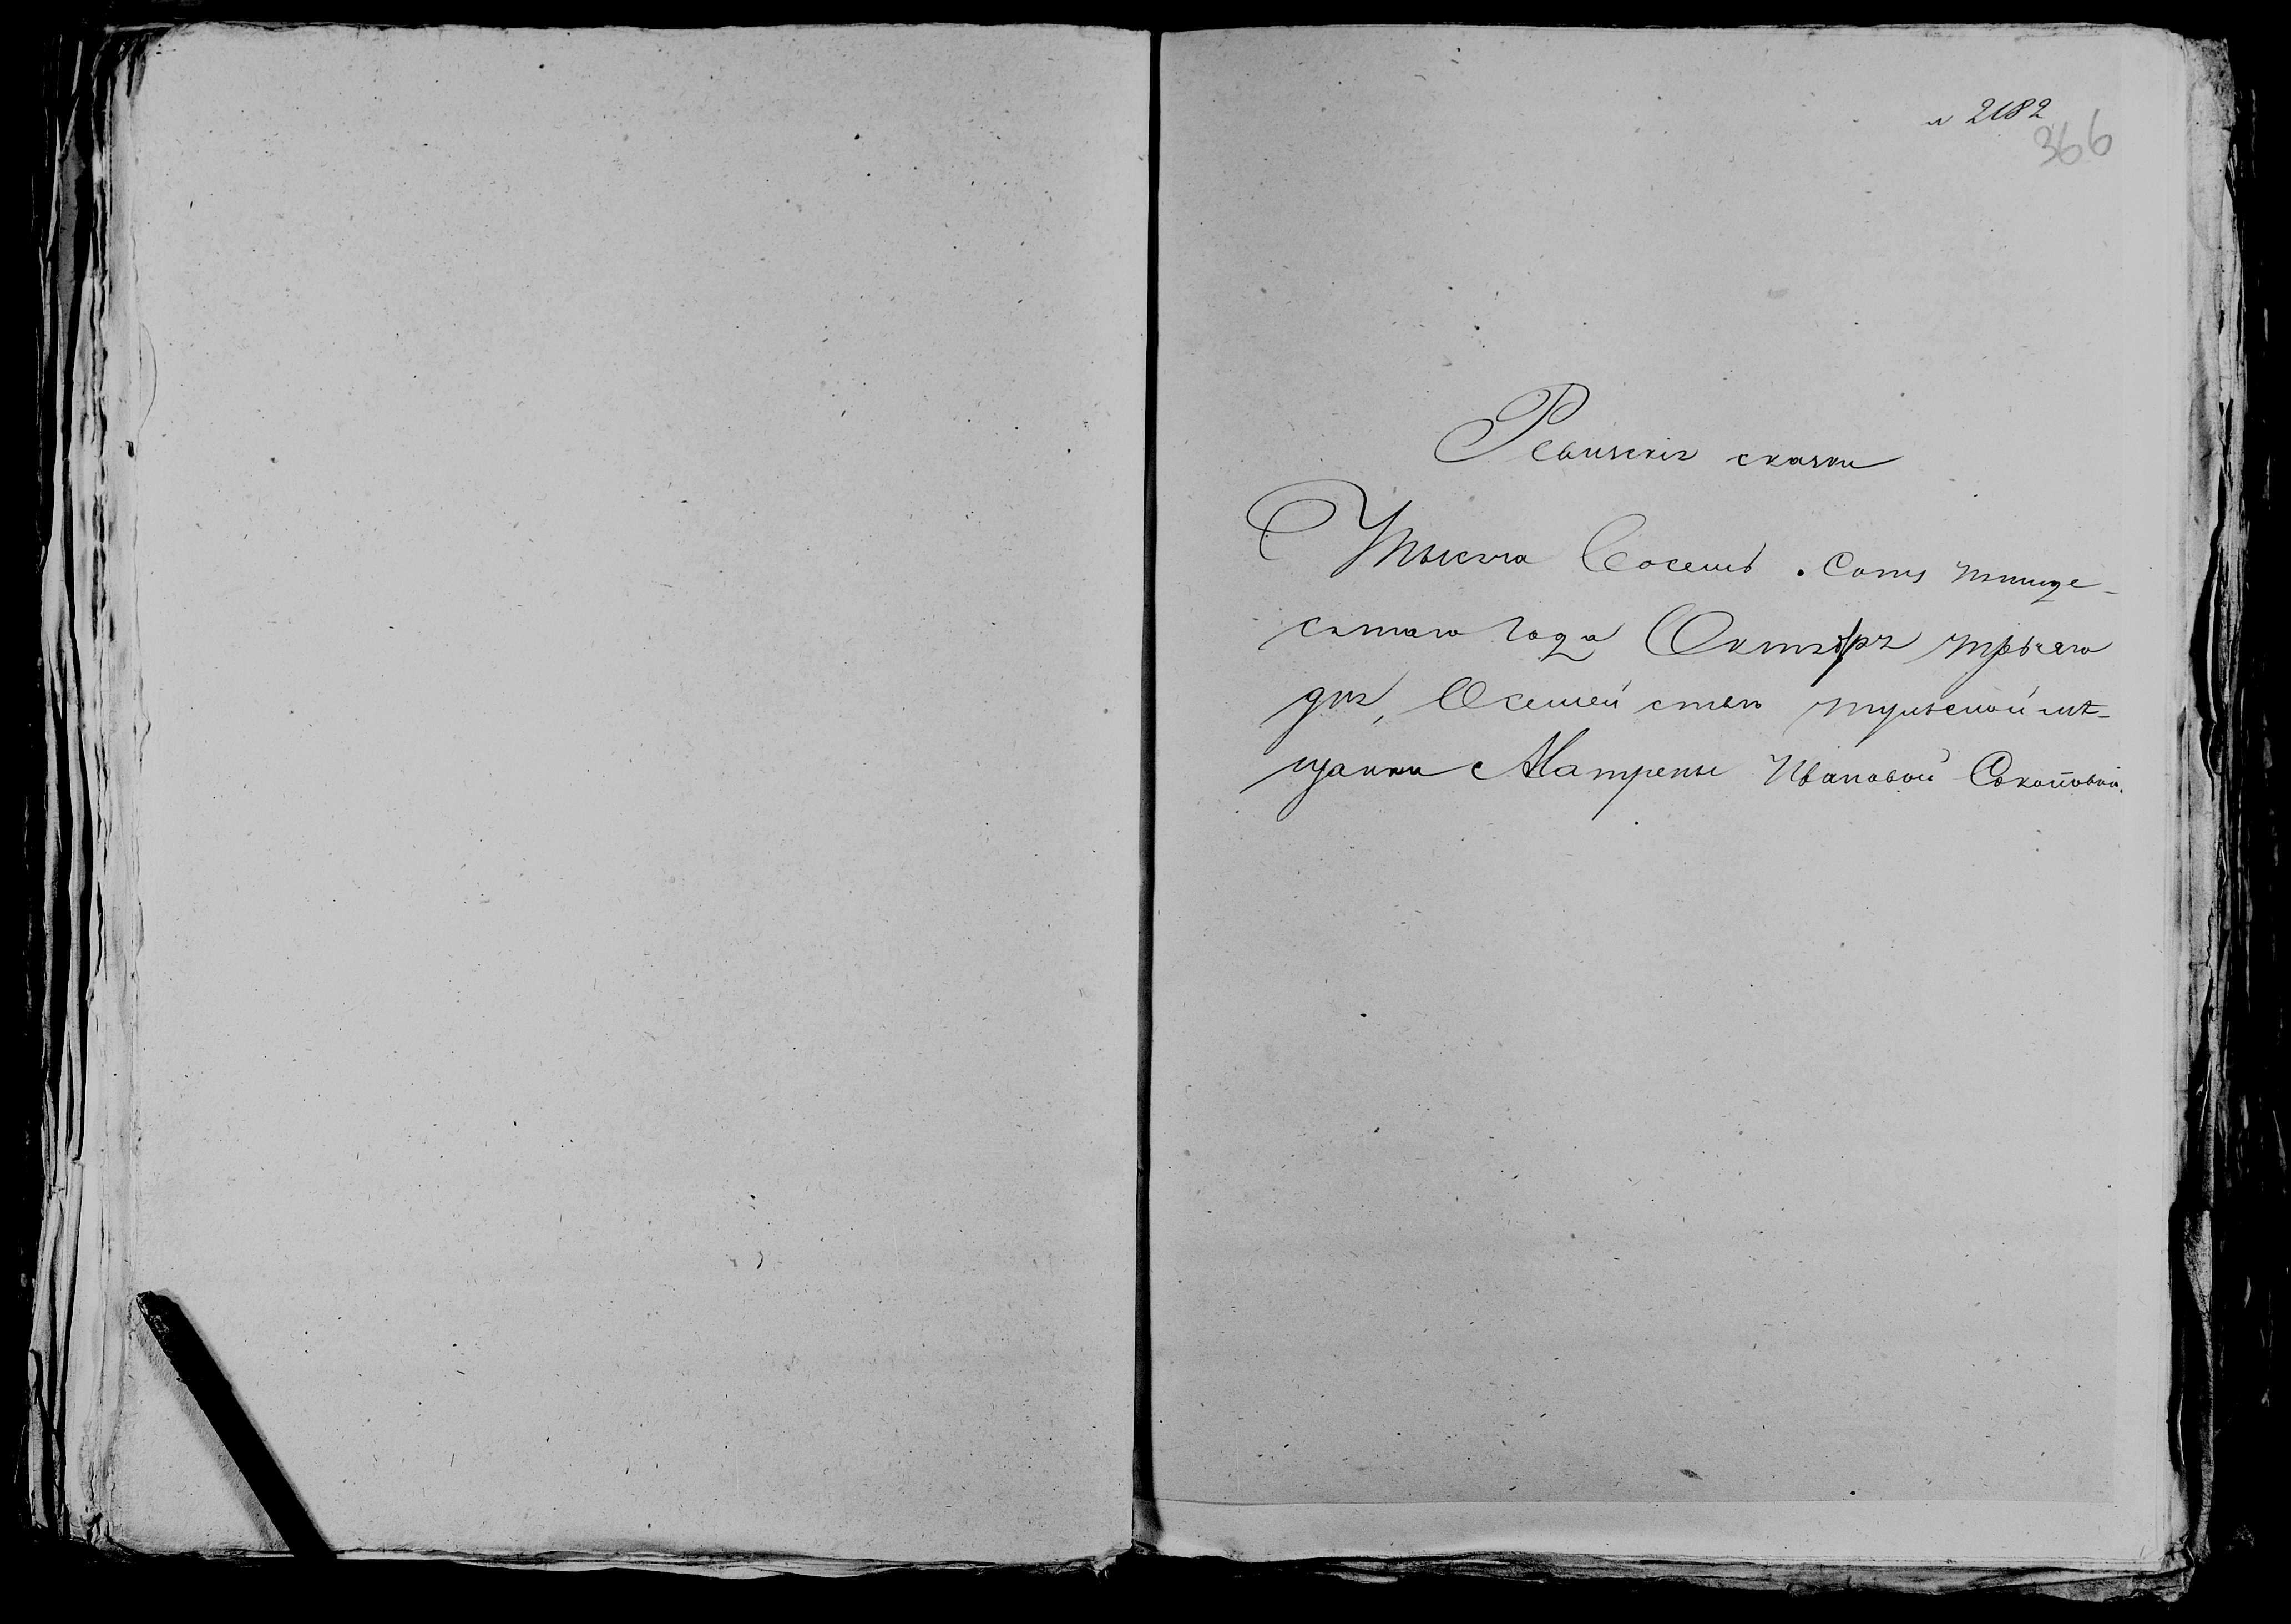 № 2182
366
Ревизския сказки
Тысяча Восемь Сотъ пятиде-
сятаго Года Октября третяго
дня, О семействе тульской мѣ-
щанки Матрены Ивановой Соколовой.